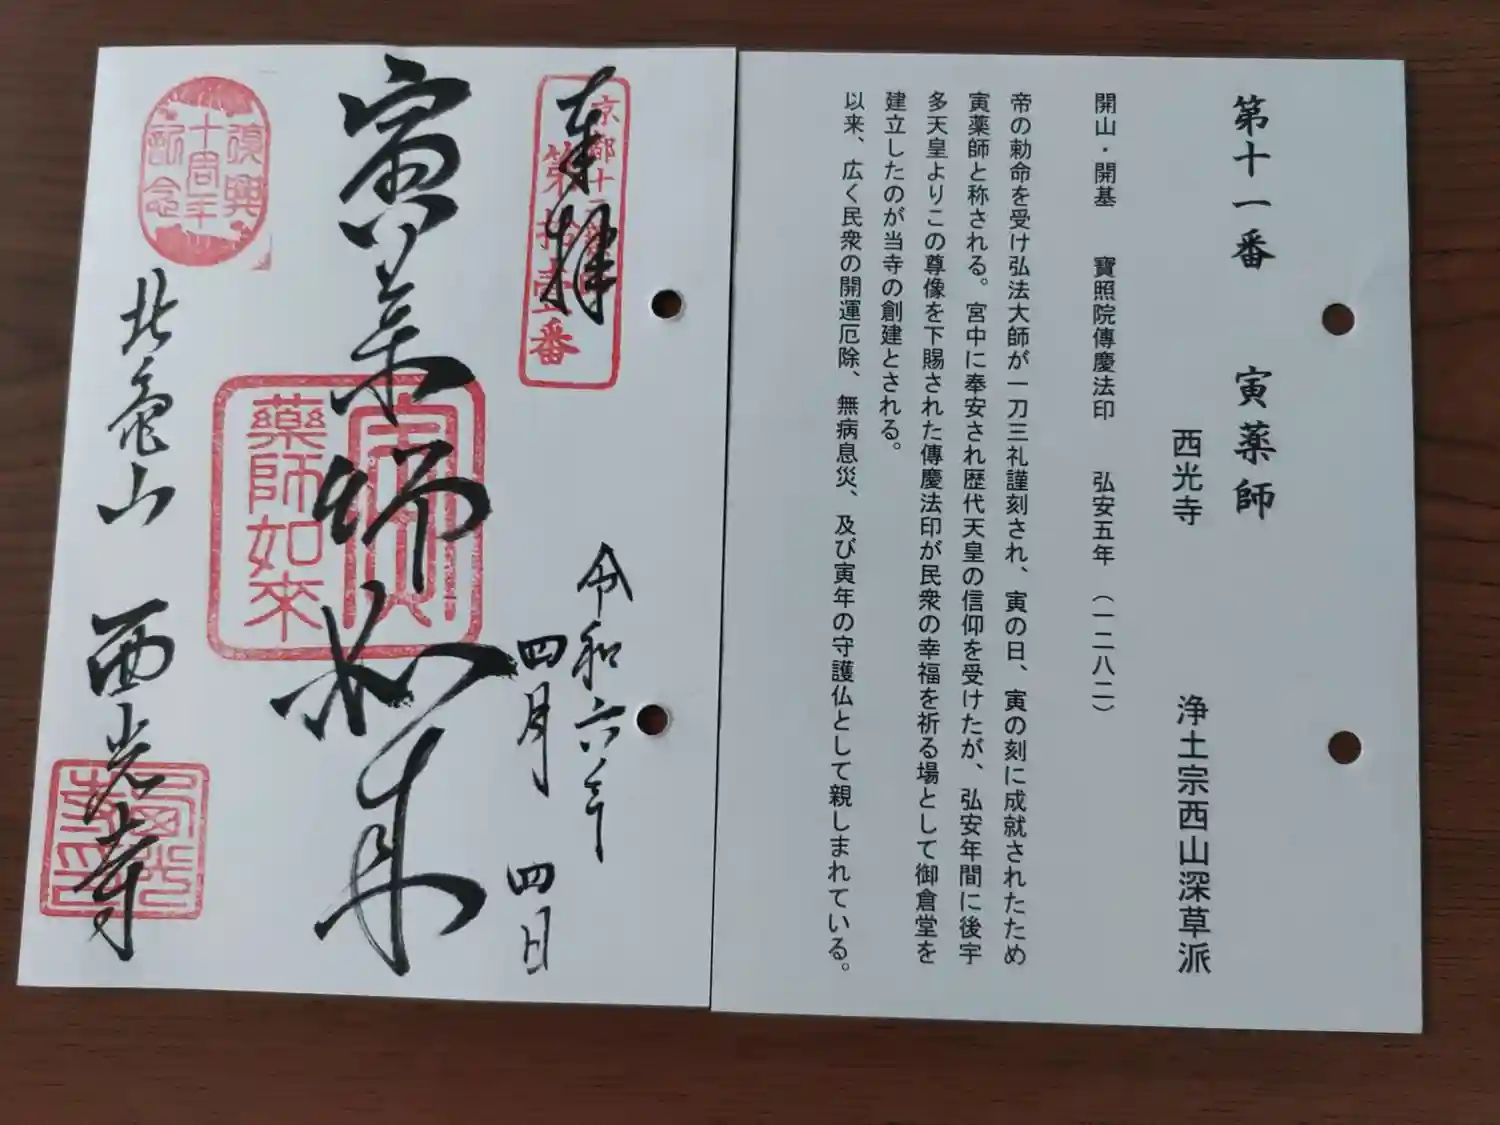 第十一番 寅薬師
西光寺 浄土宗西山深草派
開山・開基 寶照院傳慶法印 弘安五年（一二八二）
帝の勅命を受け弘法大師が一刀三礼謹刻され、寅の日、寅の刻に成就されたため
寅薬師と称される。宮中に奉安され歴代天皇の信仰を受けたが、弘安年間に後宇
多天皇よりこの尊像を下賜された傳慶法印が民衆の幸福を祈る場として御倉堂を
建立したのが当寺の創建とされる。
以来、広く民衆の開運厄除、無病息災、及び寅年の守護仏として親しまれている。
奉拝
第拾壹番
令和六年
四月 四日
寅薬師如来
薬師如來
復興
十周年
記念
北亀山 西光寺